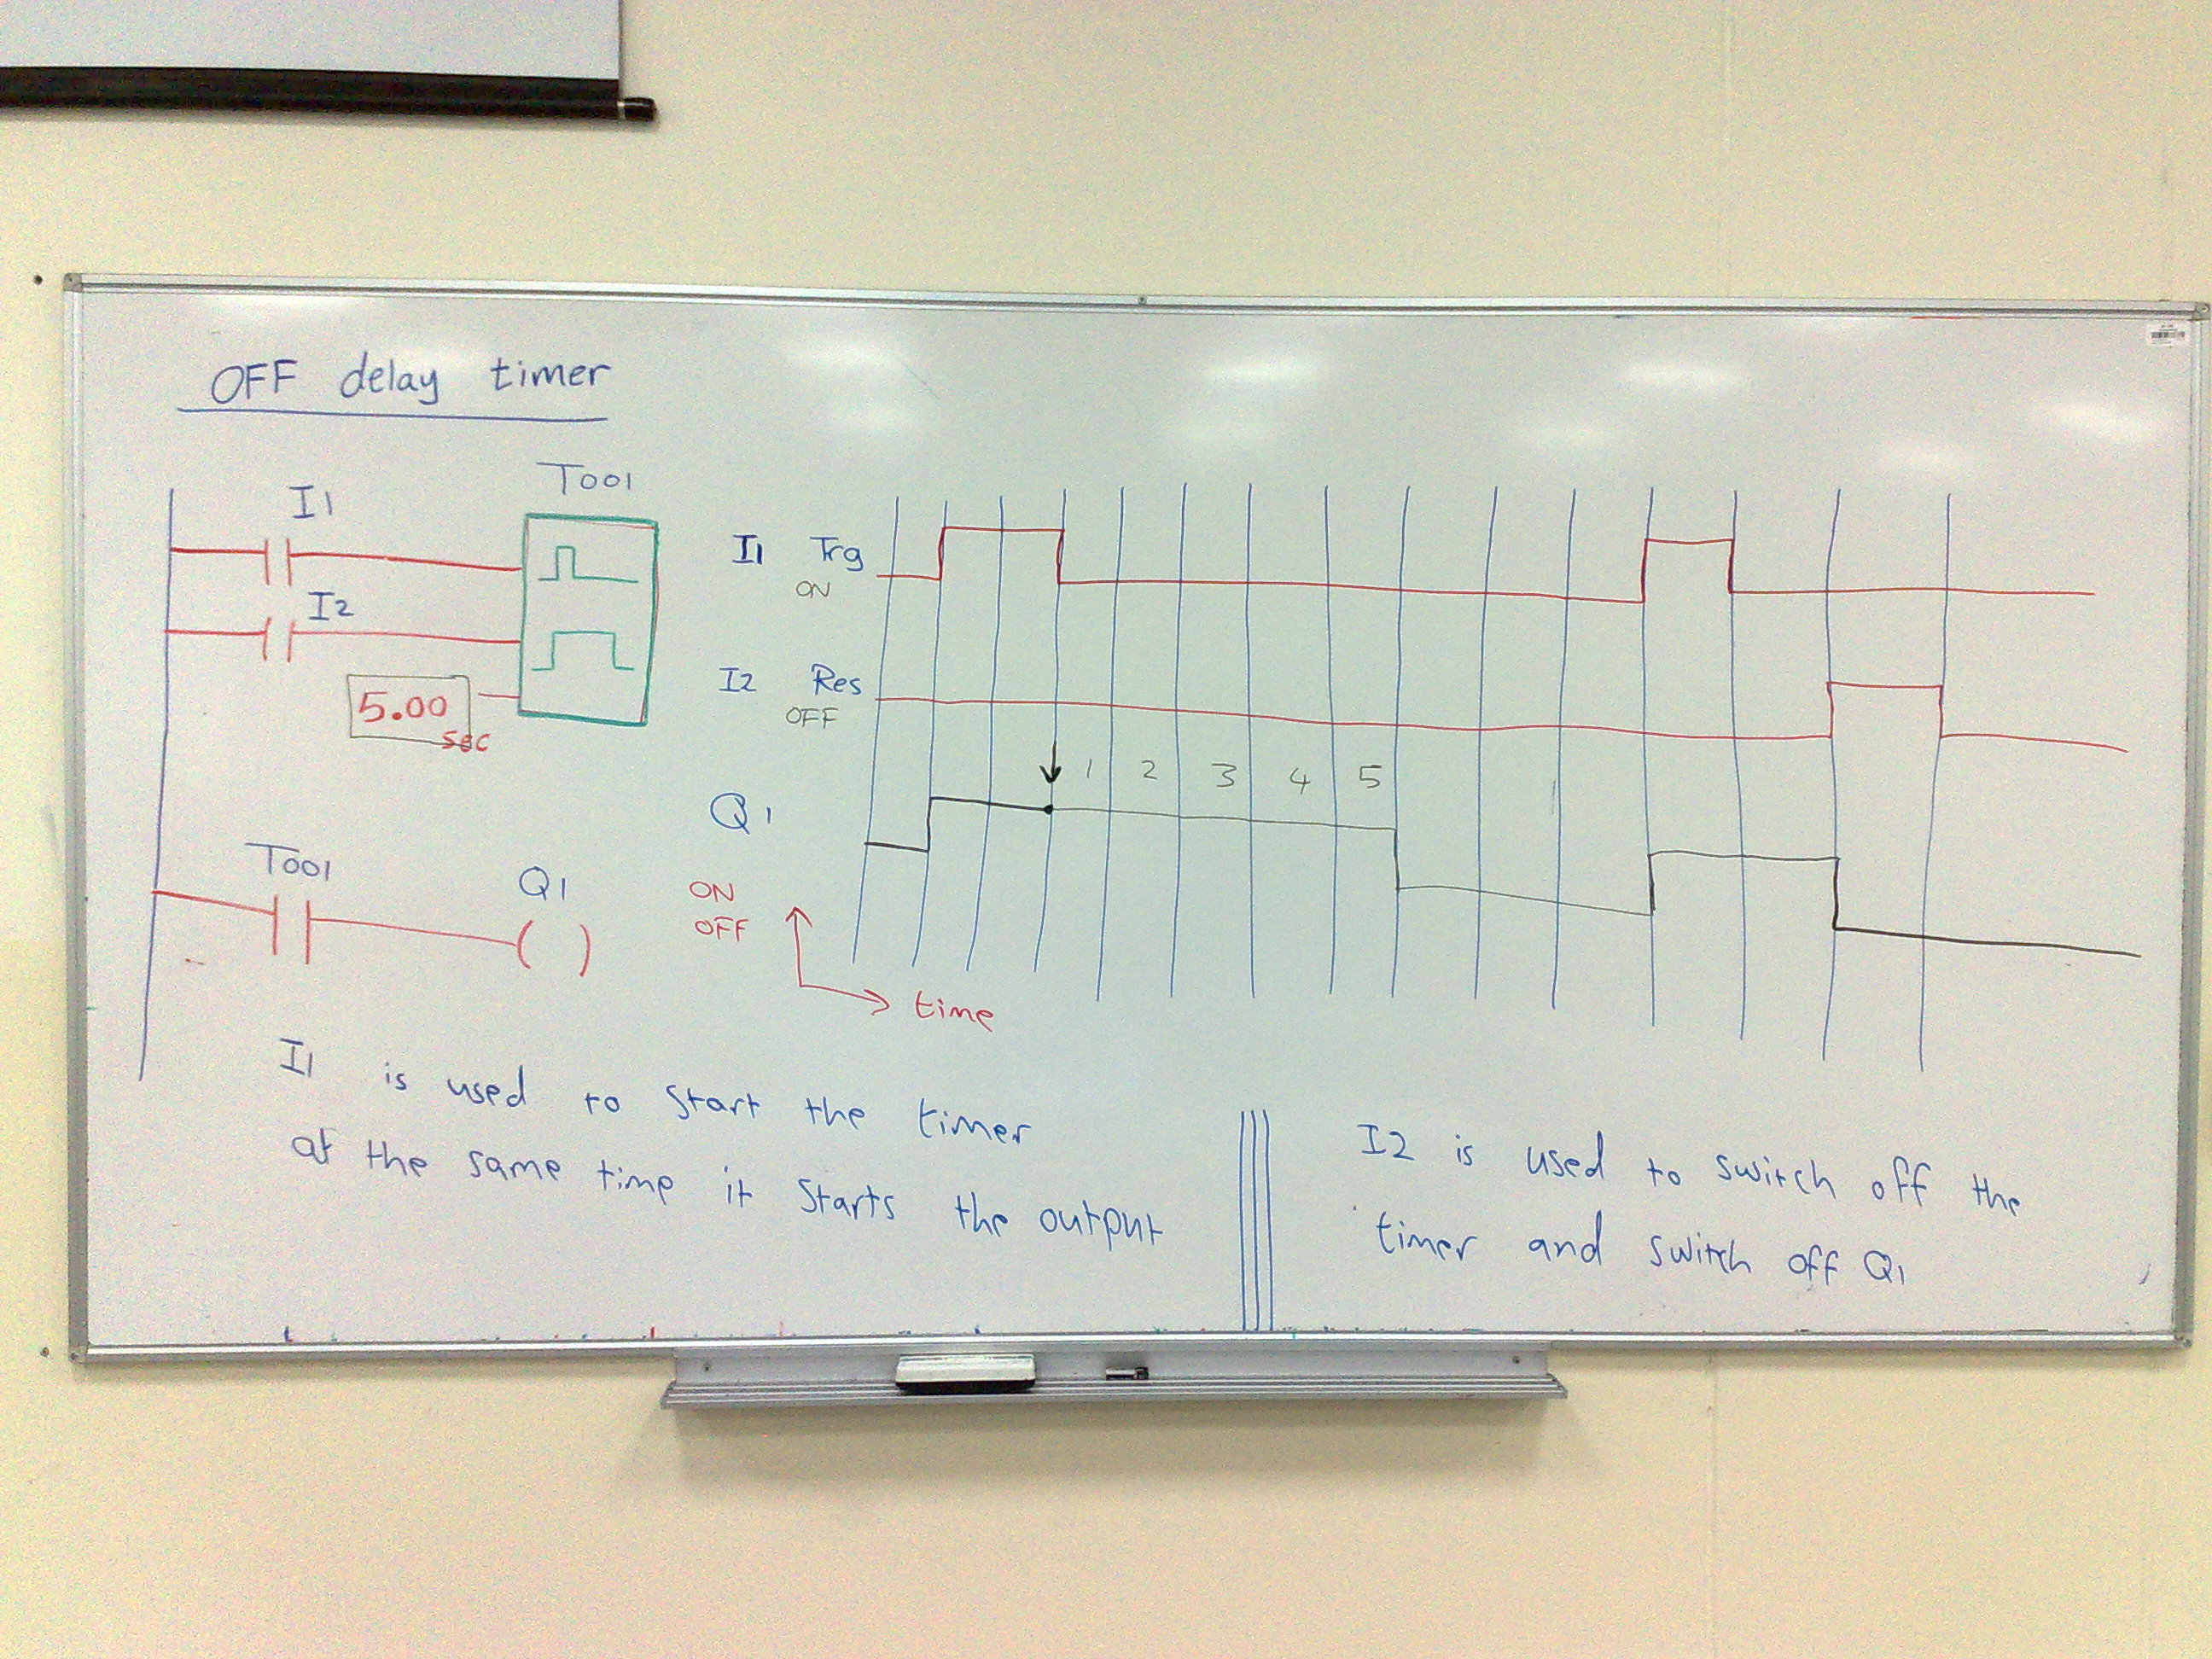 OFF delay timer
I1
T001
I2
5.00
sec
T001
Q1
I1 Trg
ON
I2 Res
OFF
1 2 3 4 5
Q1
ON
OFF
time
I1 is used to start the timer
at the same time it starts the output
I2 is used to switch off the
timer and switch off Q1